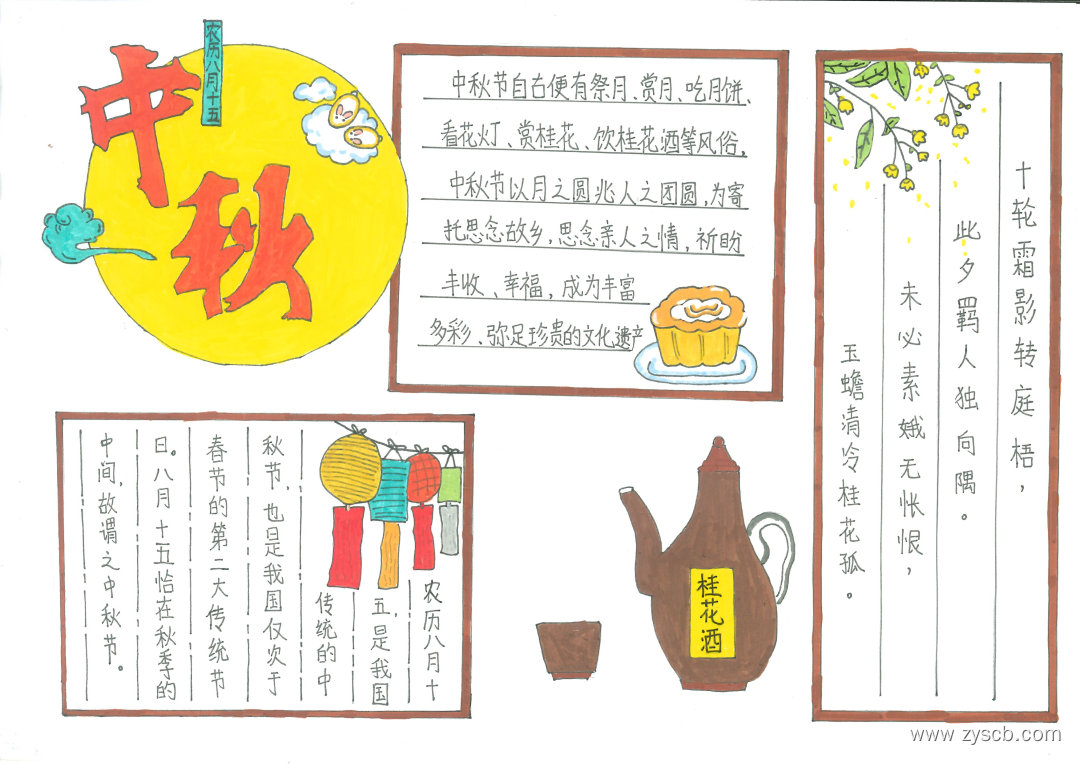 农历八月十五
中秋
中秋节自古便有祭月、赏月、吃月饼、
看花灯、赏桂花、饮桂花酒等风俗,
中秋节以月之圆兆人之团圆,为寄
托思念故乡,思念亲人之情,祈盼
丰收、幸福,成为丰富
多彩、弥足珍贵的文化遗产
十轮霜影转庭梧,
此夕羁人独向隅。
未必素娥无怅恨,
玉蟾清冷桂花孤。
农历八月十
五,是我国
传统的中
秋节,也是我国仅次于
春节的第二大传统节
日。八月十五恰在秋季的
中间,故谓之中秋节。
桂花酒
www.zyscb.com